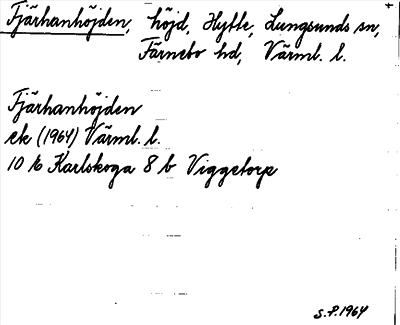 Fjärhanhöjden, höjd, Hytte, Lungsunds sn,
Färnebo hd, Värml. l.
Fjärhanhöjden
ek (1964) Värml. l.
10 E Karlskoga 8 b Viggetorp
S.P. 1964